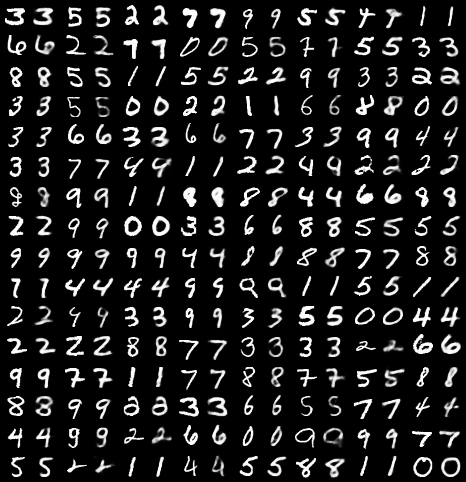 3 3 5 5 2 2 7 7 9 9 5 5 4 4 1 1
6 6 2 2 7 7 0 0 5 5 7 7 5 5 3 3
8 8 5 5 1 1 5 5 2 2 9 9 3 3 2 2
3 3 5 5 0 0 2 2 1 1 6 6 8 8 0 0
3 3 6 6 3 3 6 6 7 7 3 3 9 9 4 4
3 3 7 7 4 4 1 1 2 2 4 4 2 2 2 2
8 8 9 9 1 1 8 8 8 8 4 4 6 6 8 8
2 2 9 9 0 0 3 3 6 6 8 8 5 5 5 5
9 9 9 9 9 9 4 4 8 8 8 8 7 7 8 8
7 7 4 4 4 4 9 9 9 9 1 1 5 5 1 1
2 2 4 4 3 3 9 9 3 3 5 5 0 0 4 4
2 2 2 2 8 8 7 7 3 3 3 3 2 2 6 6
9 9 7 7 1 1 7 7 8 8 7 7 5 5 8 8
8 8 9 9 2 2 3 3 6 6 5 5 7 7 4 4
4 4 9 9 2 2 6 6 0 0 9 9 9 9 7 7
5 5 2 2 1 1 4 4 5 5 8 8 1 1 0 0